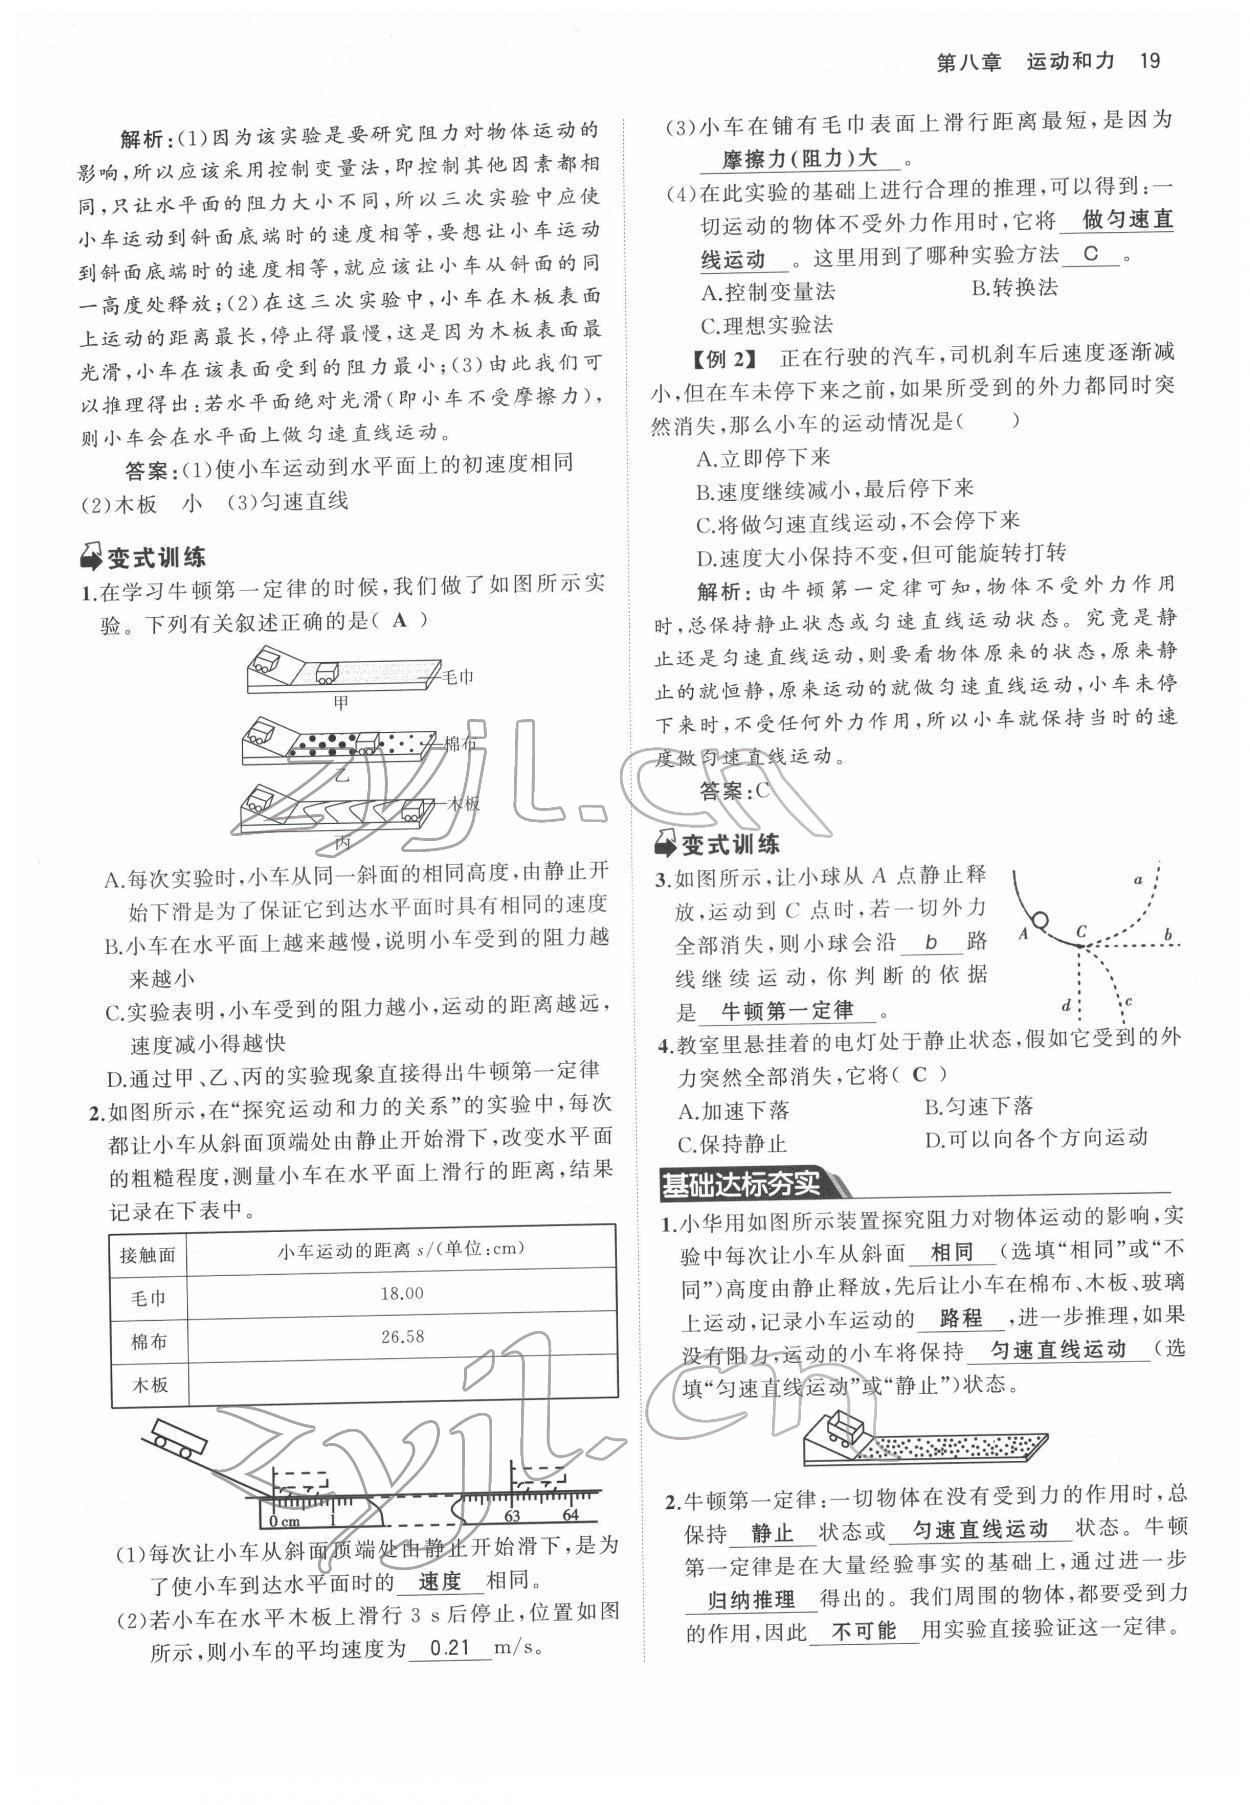 第八章 运动和力 19
解析:(1)因为该实验是要研究阻力对物体运动的
影响,所以应该采用控制变量法,即控制其他因素都相
同,只让水平面的阻力大小不同,所以三次实验中应使
小车运动到斜面底端时的速度相等,要想让小车运动
到斜面底端时的速度相等,就应该让小车从斜面的同
一高度处释放;(2)在这三次实验中,小车在木板表面
上运动的距离最长,停止得最慢,这是因为木板表面最
光滑,小车在该表面受到的阻力最小;(3)由此我们可
以推理得出:若水平面绝对光滑(即小车不受摩擦力),
则小车会在水平面上做匀速直线运动。
答案:(1)使小车运动到水平面上的初速度相同
(2)木板 小 (3)匀速直线
变式训练
1.在学习牛顿第一定律的时候,我们做了如图所示实
验。下列有关叙述正确的是( A )
毛巾
甲
棉布
乙
木板
丙
A.每次实验时,小车从同一斜面的相同高度,由静止开
始下滑是为了保证它到达水平面时具有相同的速度
B.小车在水平面上越来越慢,说明小车受到的阻力越
来越小
C.实验表明,小车受到的阻力越小,运动的距离越远,
速度减小得越快
D.通过甲、乙、丙的实验现象直接得出牛顿第一定律
2.如图所示,在“探究运动和力的关系”的实验中,每次
都让小车从斜面顶端处由静止开始滑下,改变水平面
的粗糙程度,测量小车在水平面上滑行的距离,结果
记录在下表中。
接触面 小车运动的距离 s/(单位:cm)
毛巾 18.00
棉布 26.58
木板
0 cm 1 63 64
(1)每次让小车从斜面顶端处由静止开始滑下,是为
了使小车到达水平面时的 速度 相同。
(2)若小车在水平木板上滑行 3 s 后停止,位置如图
所示,则小车的平均速度为 0.21 m/s。
(3)小车在铺有毛巾表面上滑行距离最短,是因为
摩擦力(阻力)大 。
(4)在此实验的基础上进行合理的推理,可以得到:一
切运动的物体不受外力作用时,它将 做匀速直
线运动 。这里用到了哪种实验方法 C 。
A.控制变量法 B.转换法
C.理想实验法
【例 2】 正在行驶的汽车,司机刹车后速度逐渐减
小,但在车未停下来之前,如果所受到的外力都同时突
然消失,那么小车的运动情况是( )
A.立即停下来
B.速度继续减小,最后停下来
C.将做匀速直线运动,不会停下来
D.速度大小保持不变,但可能旋转打转
解析:由牛顿第一定律可知,物体不受外力作用
时,总保持静止状态或匀速直线运动状态。究竟是静
止还是匀速直线运动,则要看物体原来的状态,原来静
止的就恒静,原来运动的就做匀速直线运动,小车未停
下来时,不受任何外力作用,所以小车就保持当时的速
度做匀速直线运动。
答案:C
变式训练
3.如图所示,让小球从 A 点静止释
放,运动到 C 点时,若一切外力
全部消失,则小球会沿 b 路
线继续运动,你判断的依据
是 牛顿第一定律 。
A C a b c d
4.教室里悬挂着的电灯处于静止状态,假如它受到的外
力突然全部消失,它将( C )
A.加速下落 B.匀速下落
C.保持静止 D.可以向各个方向运动
基础达标夯实
1.小华用如图所示装置探究阻力对物体运动的影响,实
验中每次让小车从斜面 相同 (选填“相同”或“不
同”)高度由静止释放,先后让小车在棉布、木板、玻璃
上运动,记录小车运动的 路程 ,进一步推理,如果
没有阻力,运动的小车将保持 匀速直线运动 (选
填“匀速直线运动”或“静止”)状态。
2.牛顿第一定律:一切物体在没有受到力的作用时,总
保持 静止 状态或 匀速直线运动 状态。牛顿
第一定律是在大量经验事实的基础上,通过进一步
归纳推理 得出的。我们周围的物体,都要受到力
的作用,因此 不可能 用实验直接验证这一定律。
zyjl.cn
zyjl.cn